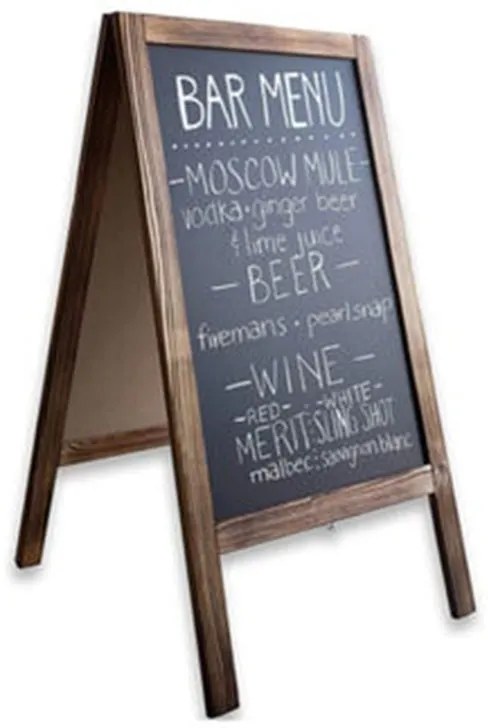 BAR MENU
-MOSCOW MULE-
vodka • ginger beer
& lime juice
- BEER -
firemans • pearl snap
- WINE -
-RED- : -WHITE-
MERIT : SLING SHOT
malbec : sauvignon blanc